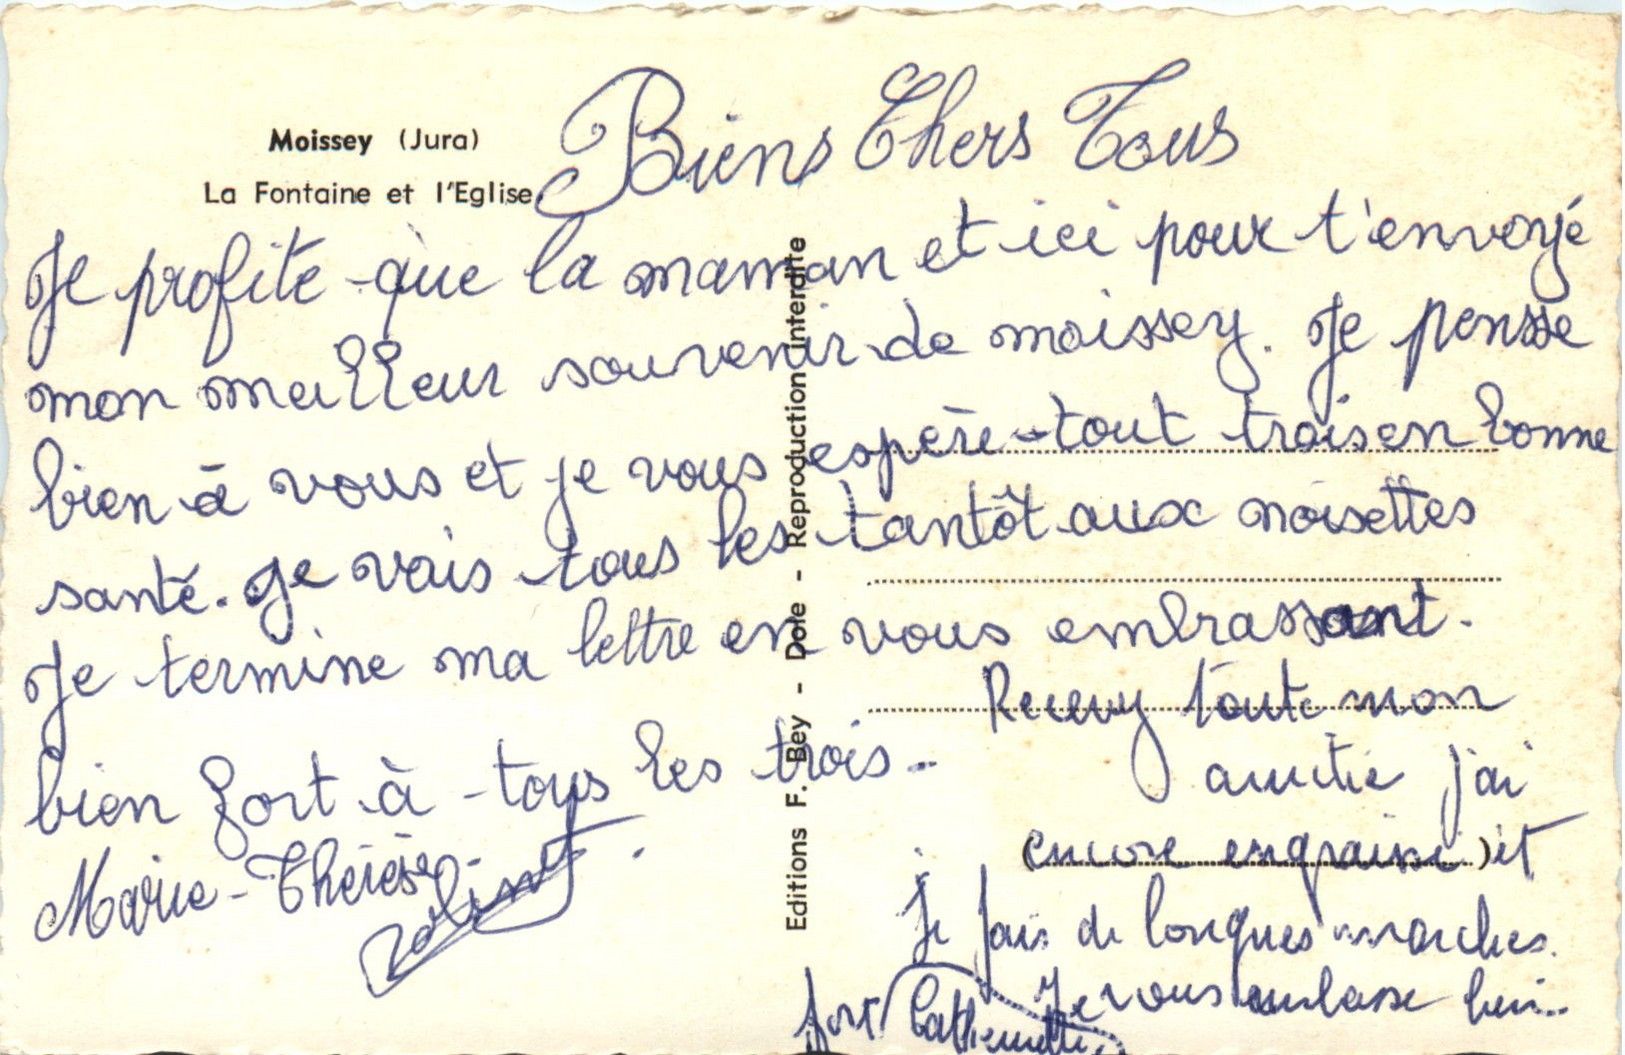 Moissey (Jura)
La Fontaine et l'Eglise
Biens Chers Tous
Je profite que la maman et ici pour t'envoyé
mon meilleur souvenir de moissey. Je pensse
bien à vous et je vous espère tout trois en bonne
santé. Je vais tous les tantôt aux noisettes
Je termine ma lettre en vous embrassant.
bien fort à tous les trois.
Marie-Thérèse
Editions F. Bey - Dole - Reproduction interdite
Recevez toute mon
amitié j'ai
(encore engraissé) et
Je fais de longues marches.
Je vous embrasse bien
fort